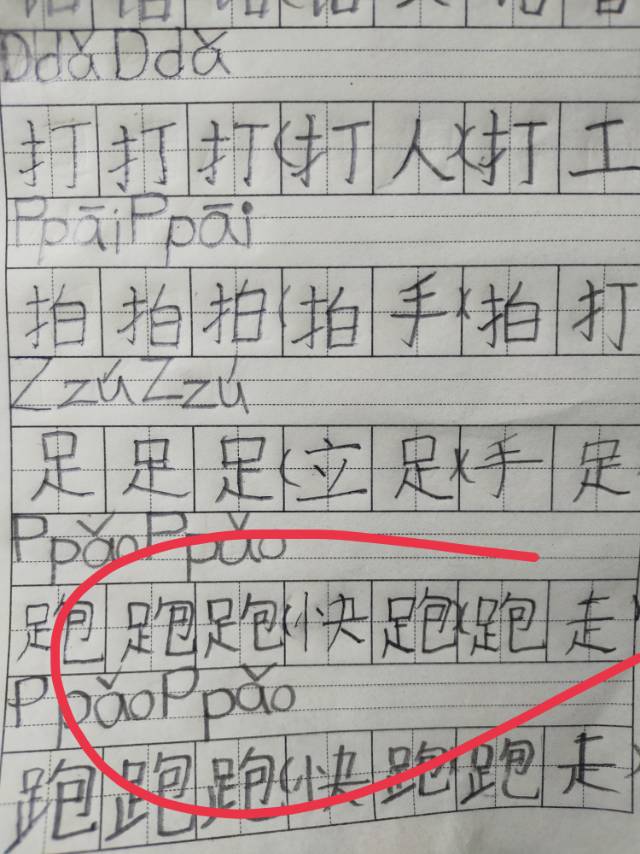 DdǎDdǎ
打打打(打人)(打工
PpāiPpāi
拍拍拍(拍手)(拍打
ZzúZzú
足足足(立足)(手足
PpǎoPpǎo
跑跑跑(快跑)(跑走)
PpǎoPpǎo
跑跑跑(快跑 跑走)